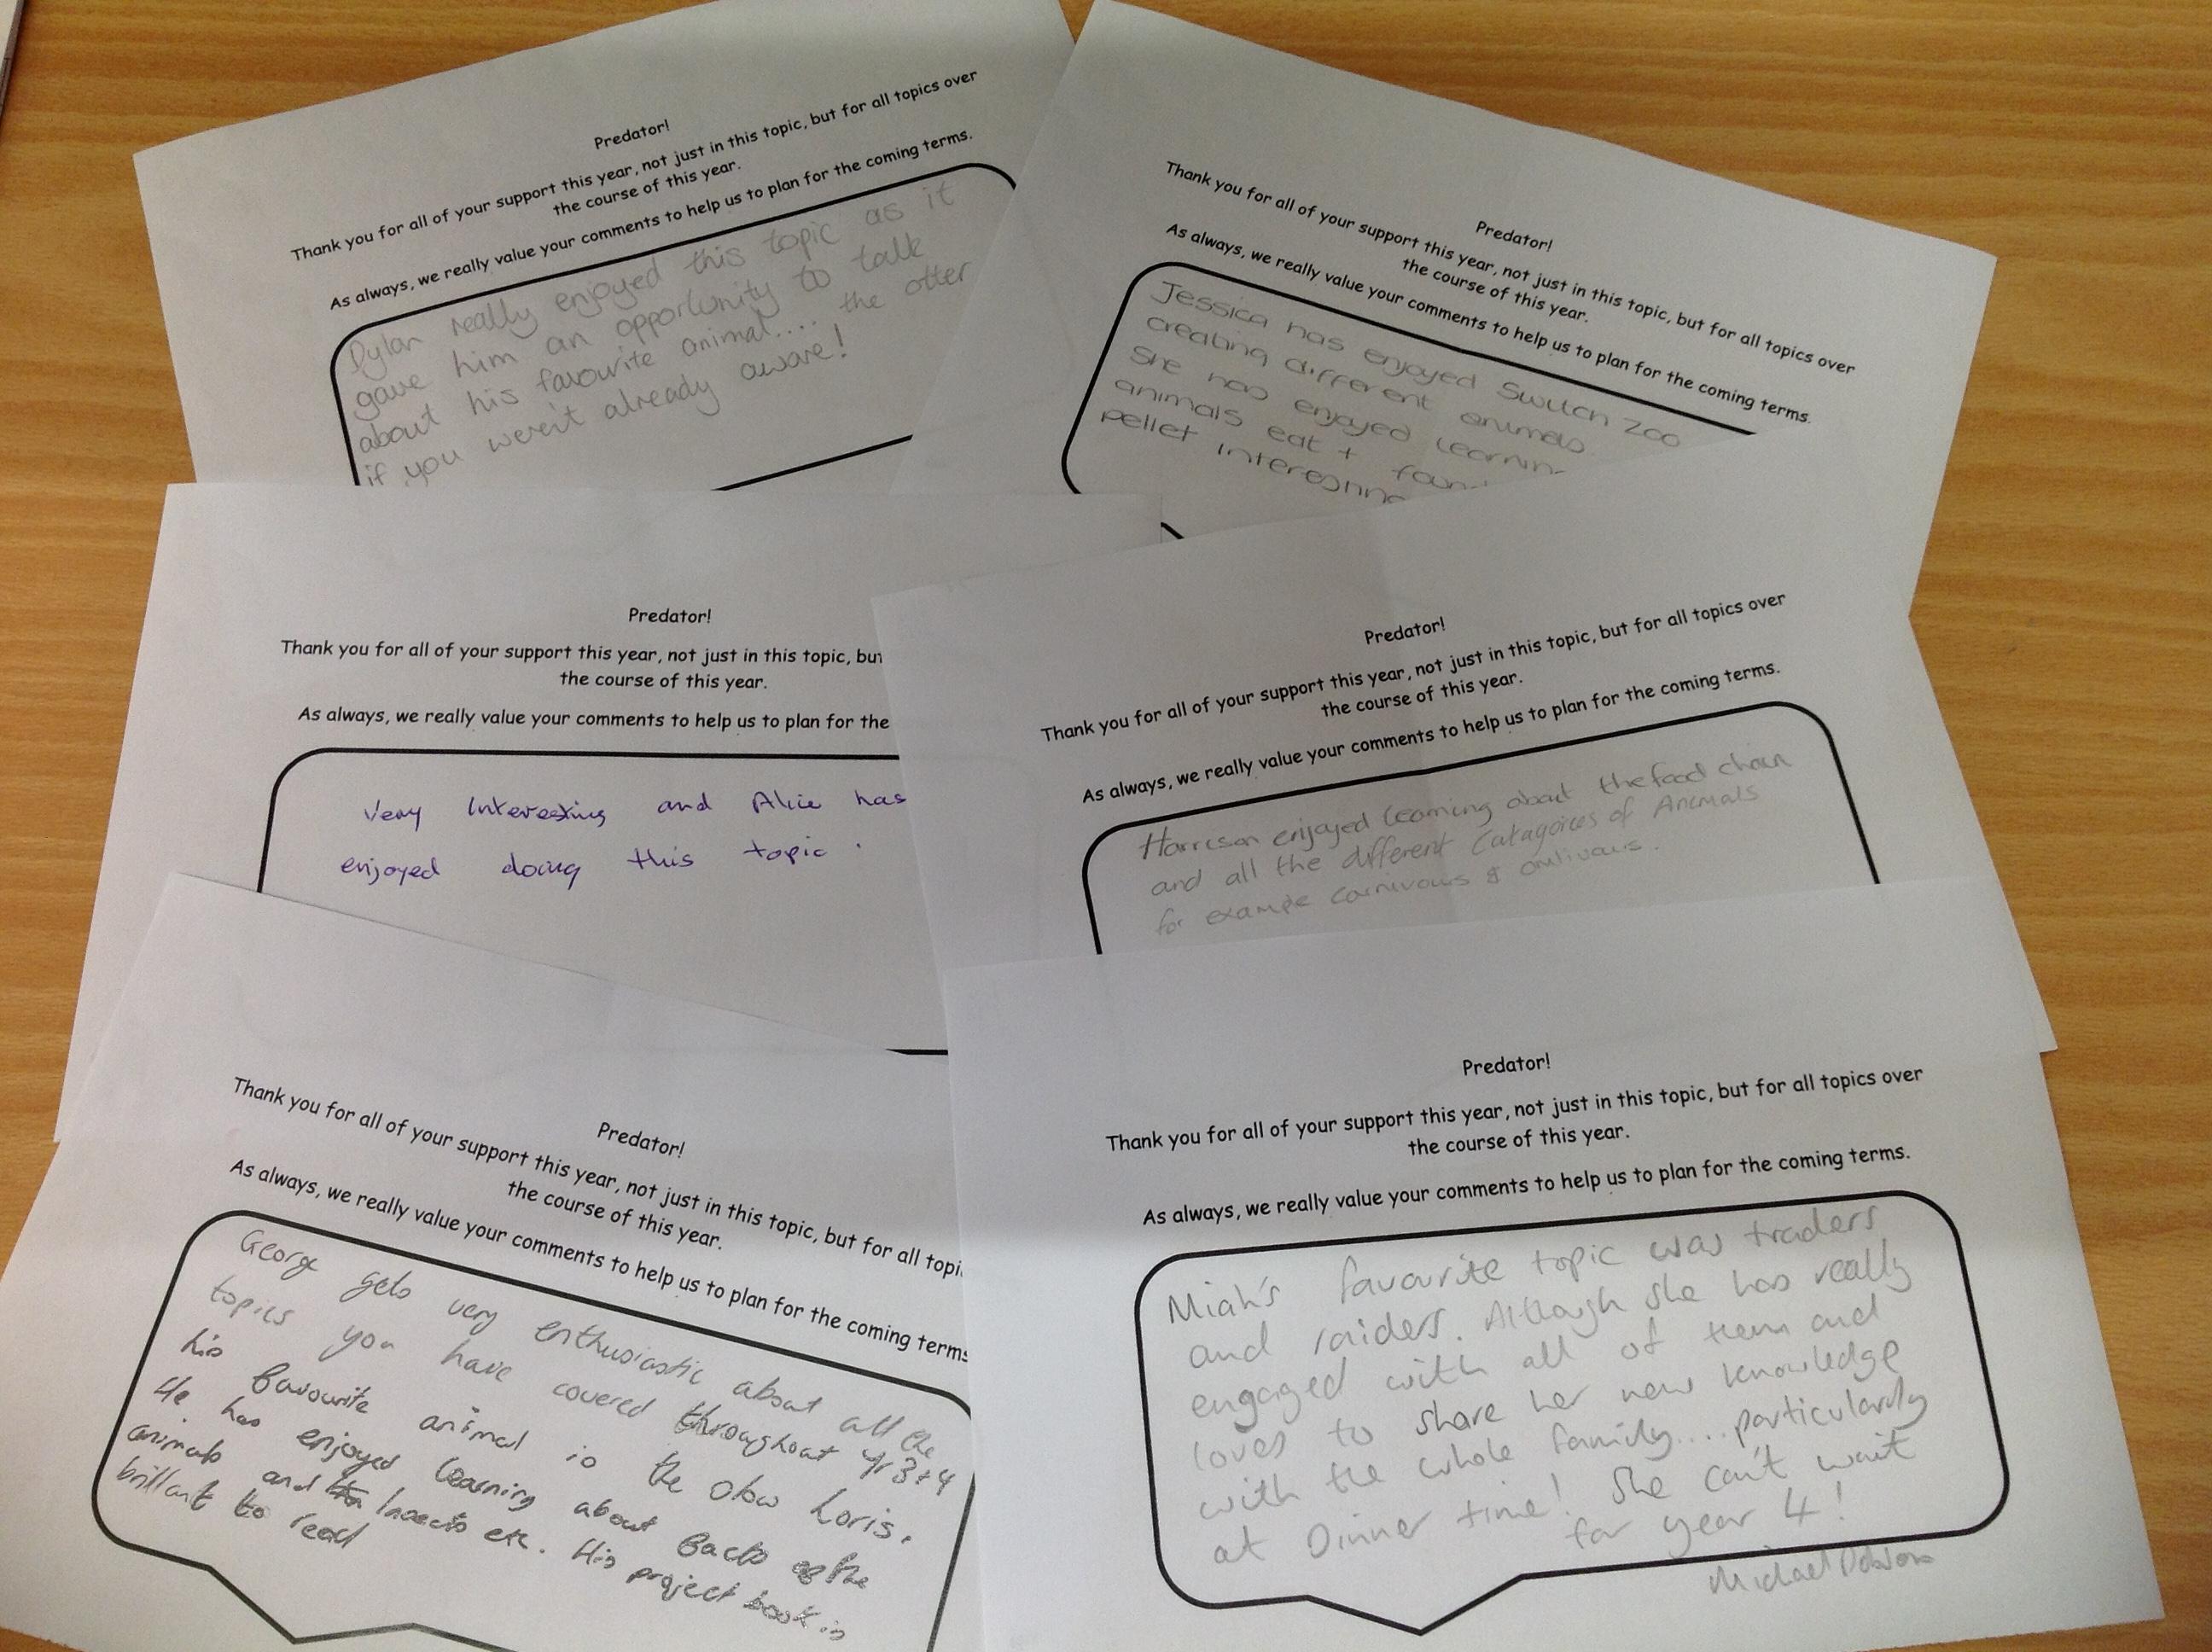 Predator!
Thank you for all of your support this year, not just in this topic, but for all topics over
the course of this year.
As always, we really value your comments to help us to plan for the coming terms.
Dylan really enjoyed this topic as it
gave him an opportunity to talk
about his favourite animal.... the otter
if you weren't already aware!
Predator!
Thank you for all of your support this year, not just in this topic, but for all topics over
the course of this year.
As always, we really value your comments to help us to plan for the coming terms.
Jessica has enjoyed Switch Zoo
creating different animals.
She has enjoyed
animals eat +
pellet interesting
Predator!
Thank you for all of your support this year, not just in this topic, but
the course of this year.
As always, we really value your comments to help us to plan for the
Very Interesting and Alice has
enjoyed doing this topic.
Predator!
Thank you for all of your support this year, not just in this topic, but for all topics over
the course of this year.
As always, we really value your comments to help us to plan for the coming terms.
Harrison enjoyed learning about the food chain
and all the different Catagoires of Animals
for example carnivous & omlivous.
Predator!
Thank you for all of your support this year, not just in this topic, but for all
the course of this year.
As always, we really value your comments to help us to plan for the coming terms
George gets very enthusiastic about all the
topics you have covered throughout yr 3+4
his favourite animal is the slow Loris.
He has enjoyed learning about facts of the
animals and Insects etc. His project book is
brillant to read
Predator!
Thank you for all of your support this year, not just in this topic, but for all topics over
the course of this year.
As always, we really value your comments to help us to plan for the coming terms.
Miah's favourite topic was traders
and raiders. Although she has really
engaged with all of them and
loves to share her new knowledge
with the whole family.... particularly
at Dinner time! She can't wait
for year 4!
Michael